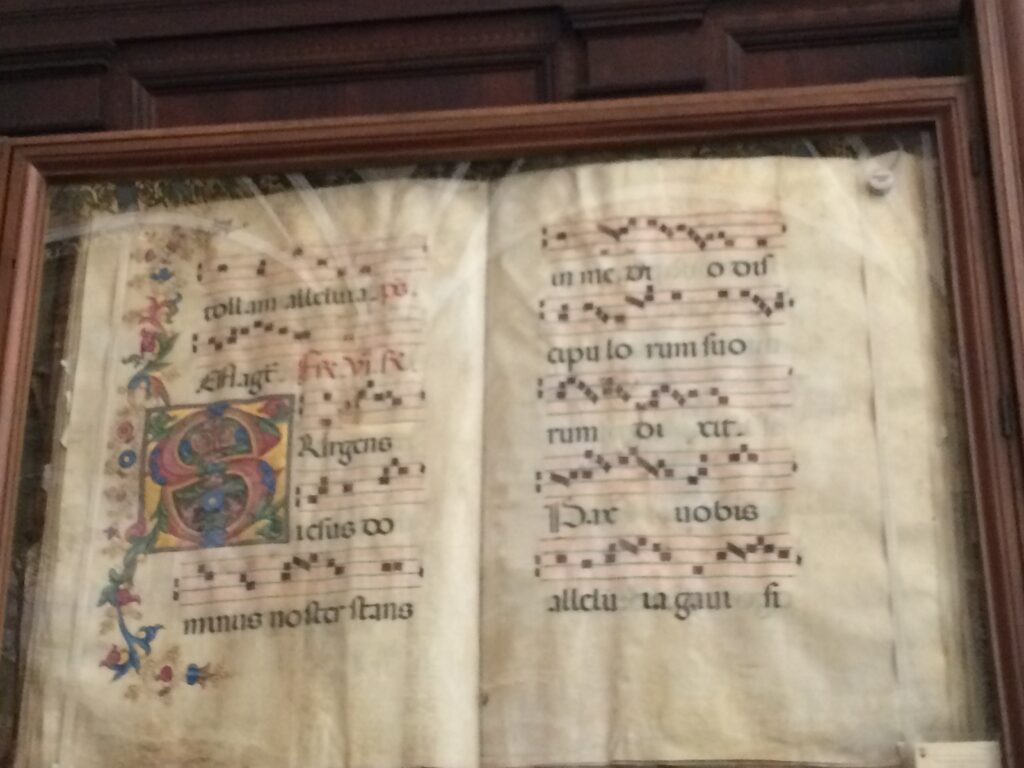 tollam alleluia. ps.
Magt. Fr. vi. R.
SUrgens
iesus do
minus noster stans
in me di o dis
cipu lo rum suo
rum di xit.
Pax uobis
allelu ia gaui si